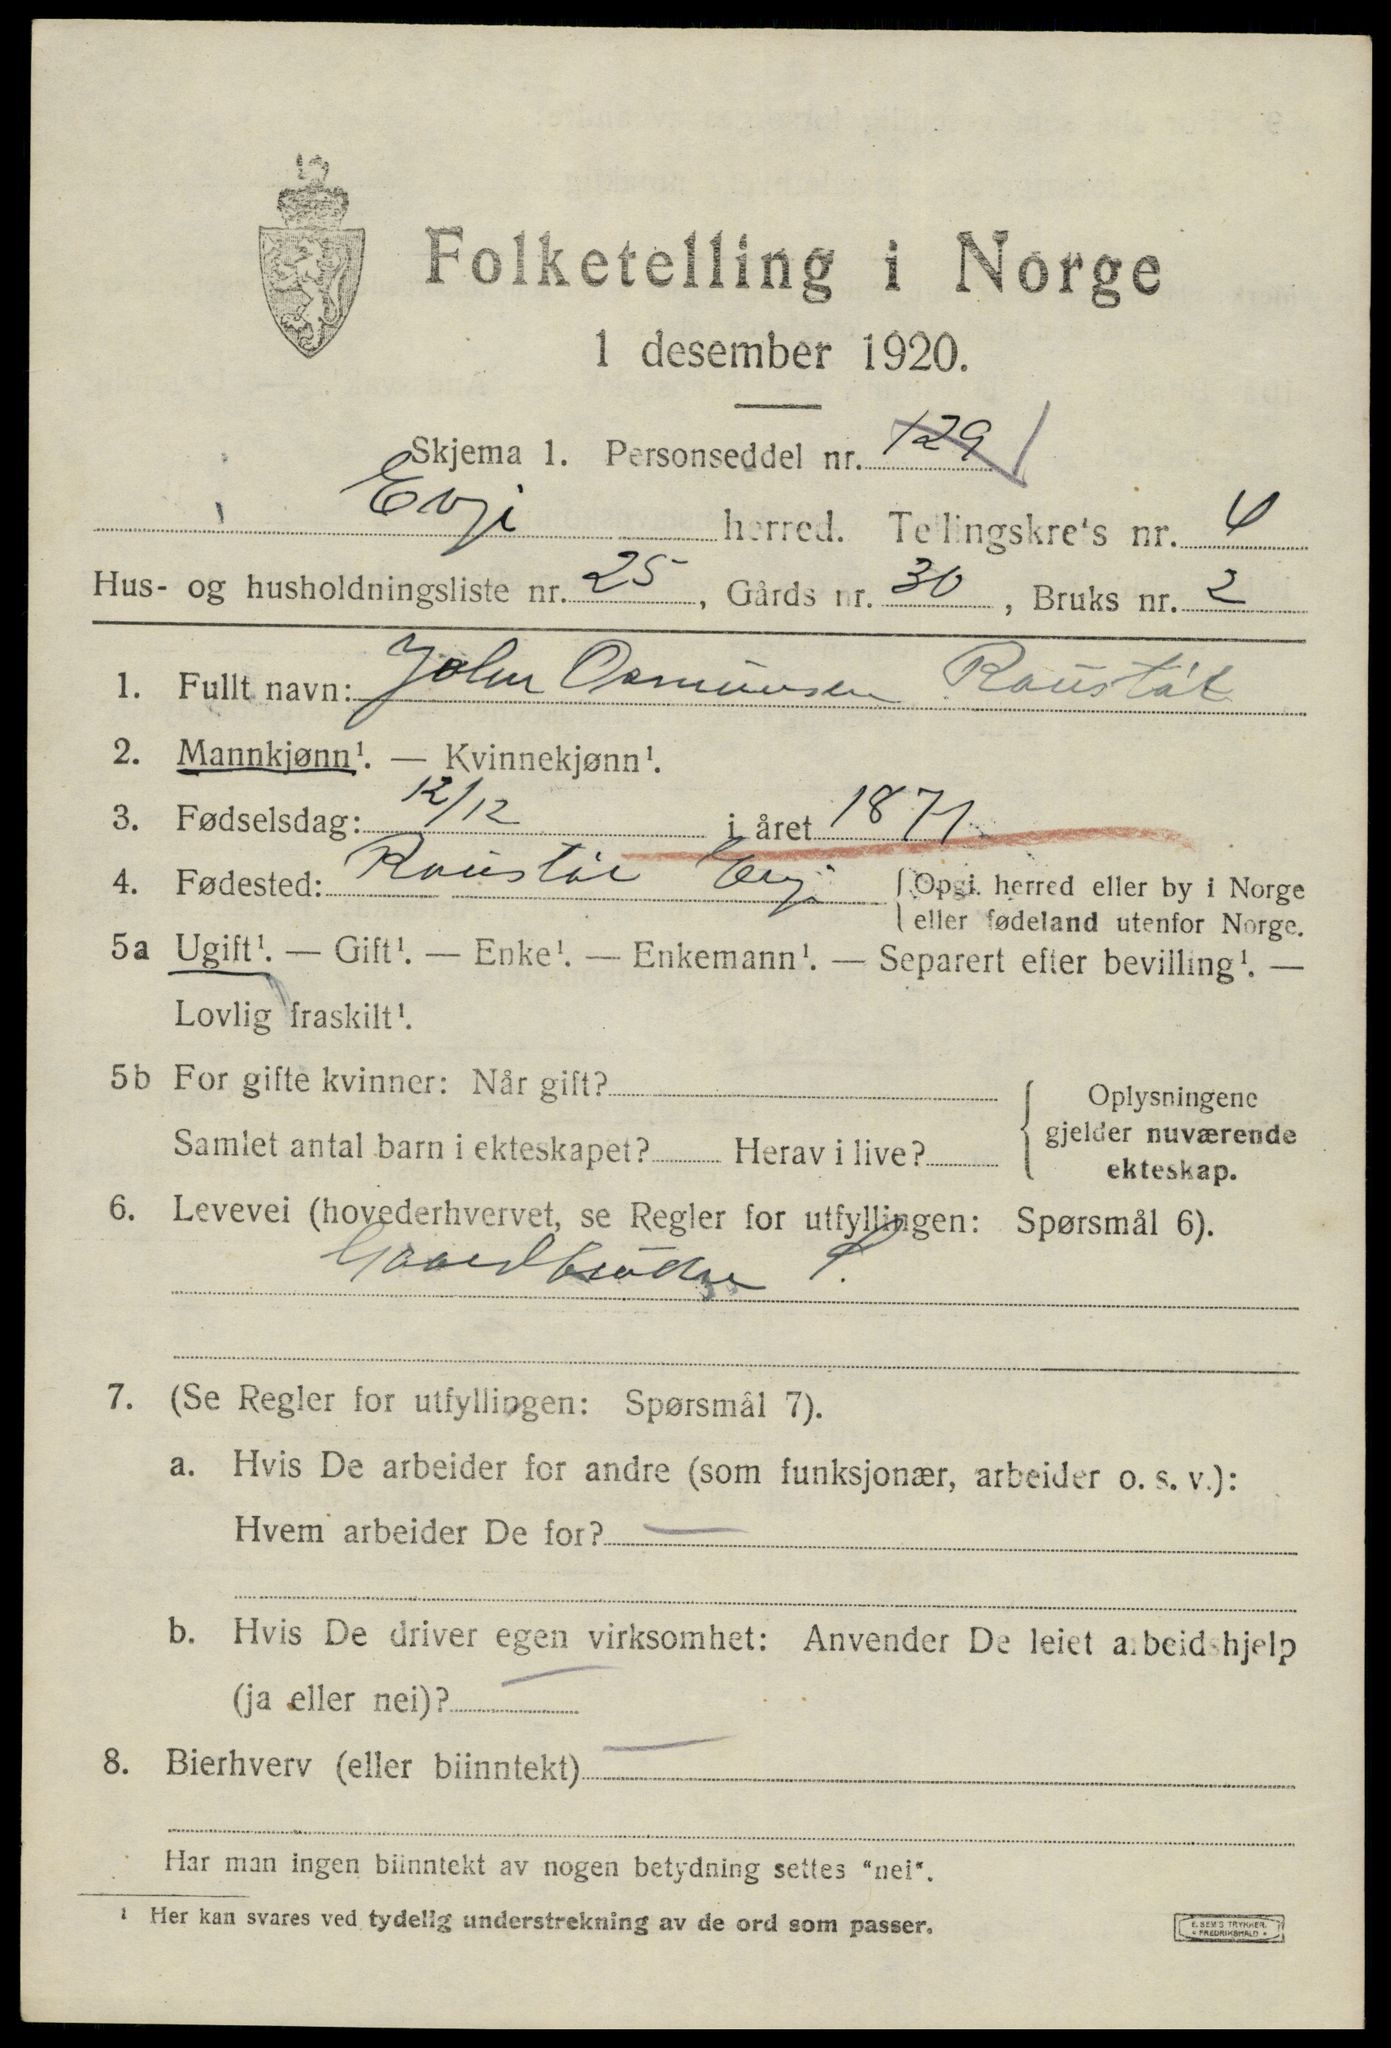 Folketelling i Norge
1 desember 1920.
Skjema 1. Personseddel nr. 129
Evje herred. Tellingskrets nr. 4
Hus- og husholdningsliste nr. 25, Gårds nr. 30, Bruks nr. 2
1. Fullt navn: John Osmunsen Raustøl
2. Mannkjønn¹. — Kvinnekjønn¹.
3. Fødselsdag: 12/12 i året 1871
4. Fødested: Raustøl Evje {Opgi herred eller by i Norge
eller fødeland utenfor Norge.
5a Ugift¹. — Gift¹. — Enke¹. — Enkemann¹. — Separert efter bevilling¹. —
Lovlig fraskilt¹.
5b For gifte kvinner: Når gift? { Oplysningene
gjelder nuværende
Samlet antal barn i ekteskapet? Herav i live?
ekteskap.
6. Levevei (hovederhvervet, se Regler for utfyllingen: Spørsmål 6).
Gaardbruker S.
7. (Se Regler for utfyllingen: Spørsmål 7).
a. Hvis De arbeider for andre (som funksjonær, arbeider o. s. v.):
Hvem arbeider De for? —
b. Hvis De driver egen virksomhet: Anvender De leiet arbeidshjelp
(ja eller nei)? —
8. Bierhverv (eller biinntekt) —
Har man ingen biinntekt av nogen betydning settes "nei".
¹ Her kan svares ved tydelig understrekning av de ord som passer.
E. SEM'S TRYKKERI
* FREDRIKSHALD *